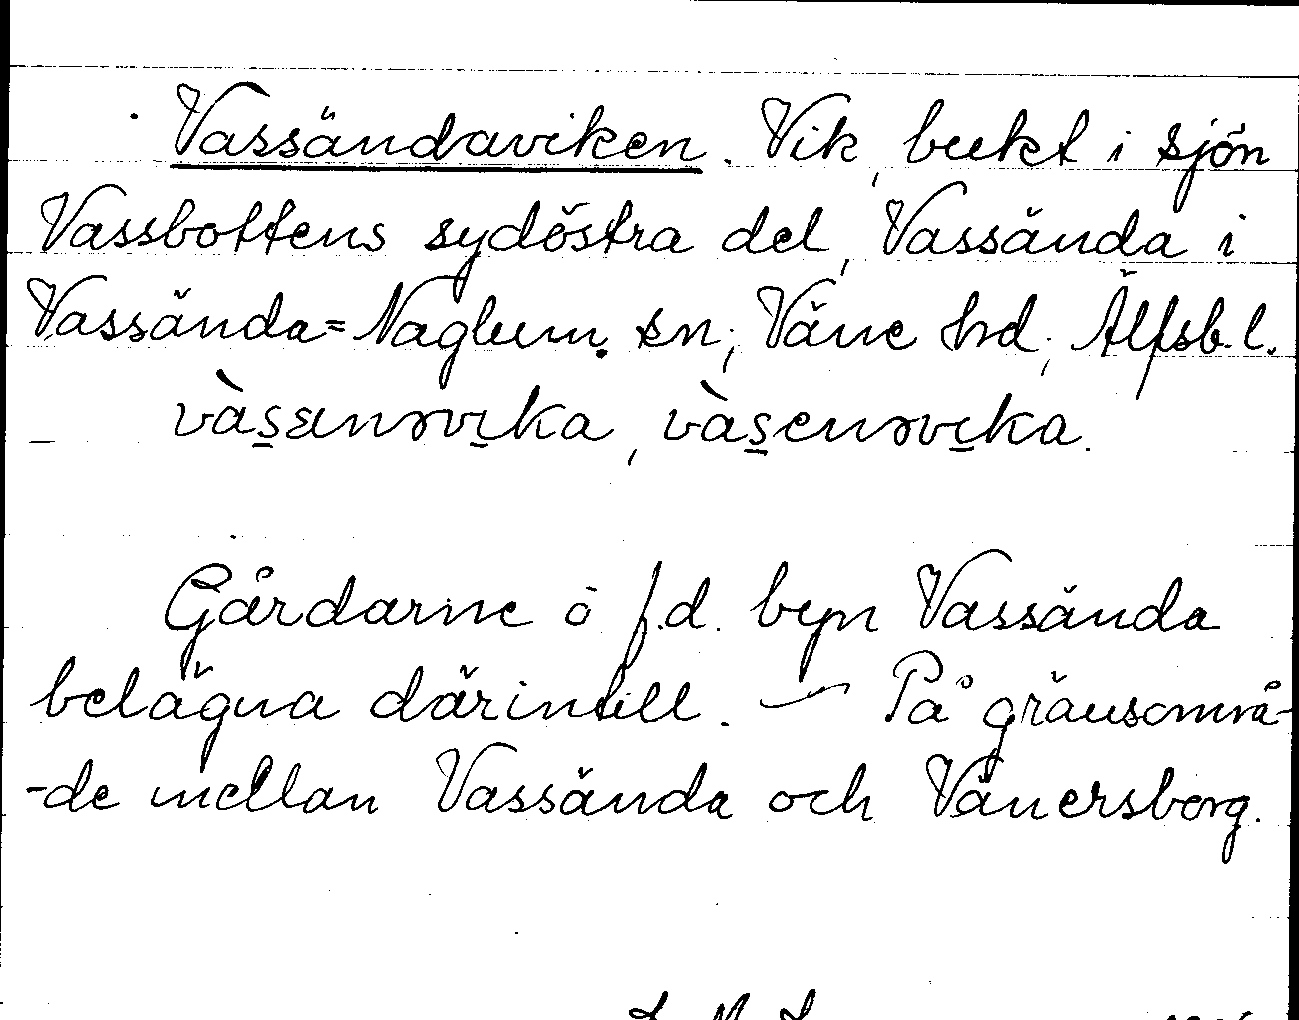 Vassändaviken. Vik, bukt i sjön
Vassbottens sydöstra del, Vassända i
Vassända=Naglum. sn, Väne hrd, Älfsb. l.
vàs̲ɛnəvɪ̲ka, vàs̲enəvɪ̲ka.
Gårdarne ö f.d. byn Vassända
belägna därintill. — På gränsområ-
-de mellan Vassända och Vänersborg.